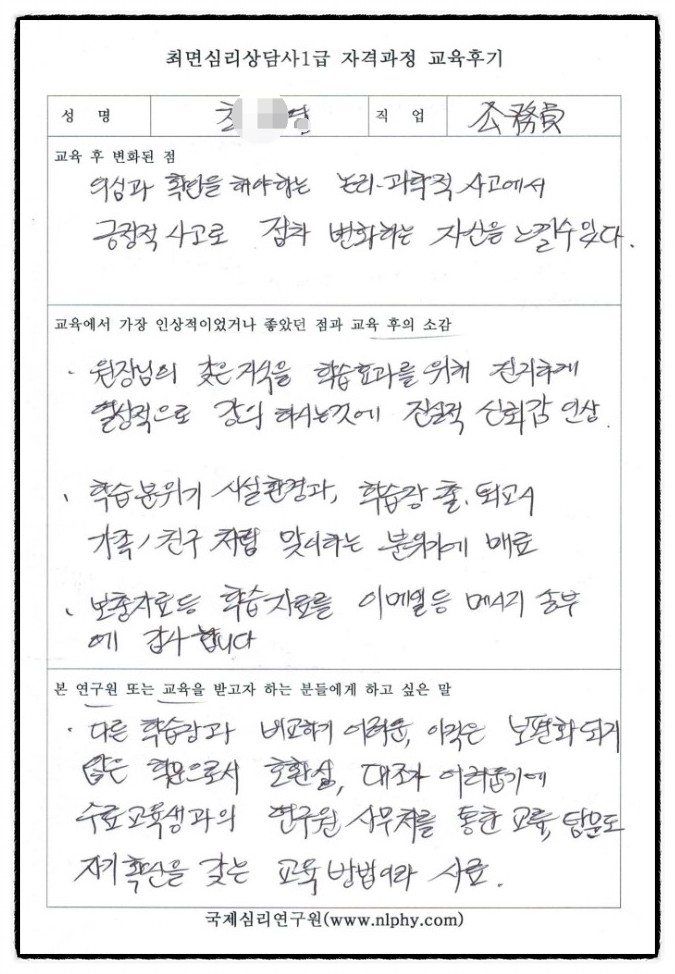 최면심리상담사1급 자격과정 교육후기
성 명 최 영 직 업 公務員
교육 후 변화된 점
의심과 확인을 해야하는 논리-과학적 사고에서
긍정적 사고로 점차 변화하는 자신을 느낄수 있다.
교육에서 가장 인상적이었거나 좋았던 점과 교육 후의 소감
· 원장님의 지식을 학습효과를 위해 진지하게
열성적으로 강의 하시는것에 신뢰감 인상.
、 학습분위기 시설환경과, 학습장 출.퇴교시
가족/친구 처럼 맞이하는 분위기에 매료
、 보충자료등 학습자료를 이메일등 메시지 송부
에 감사 합니다
본 연구원 또는 교육을 받고자 하는 분들에게 하고 싶은 말
· 다른 학습장과 비교하기 어려운, 아직은 보편화 되지
않은 학문으로서 호환성, 대조가 어려웁기에
수료교육생과의 연구원 사무처를 통한 교류, 탐문도
자기확신을 갖는 교육방법이라 사료.
국제심리연구원(www.nlphy.com)